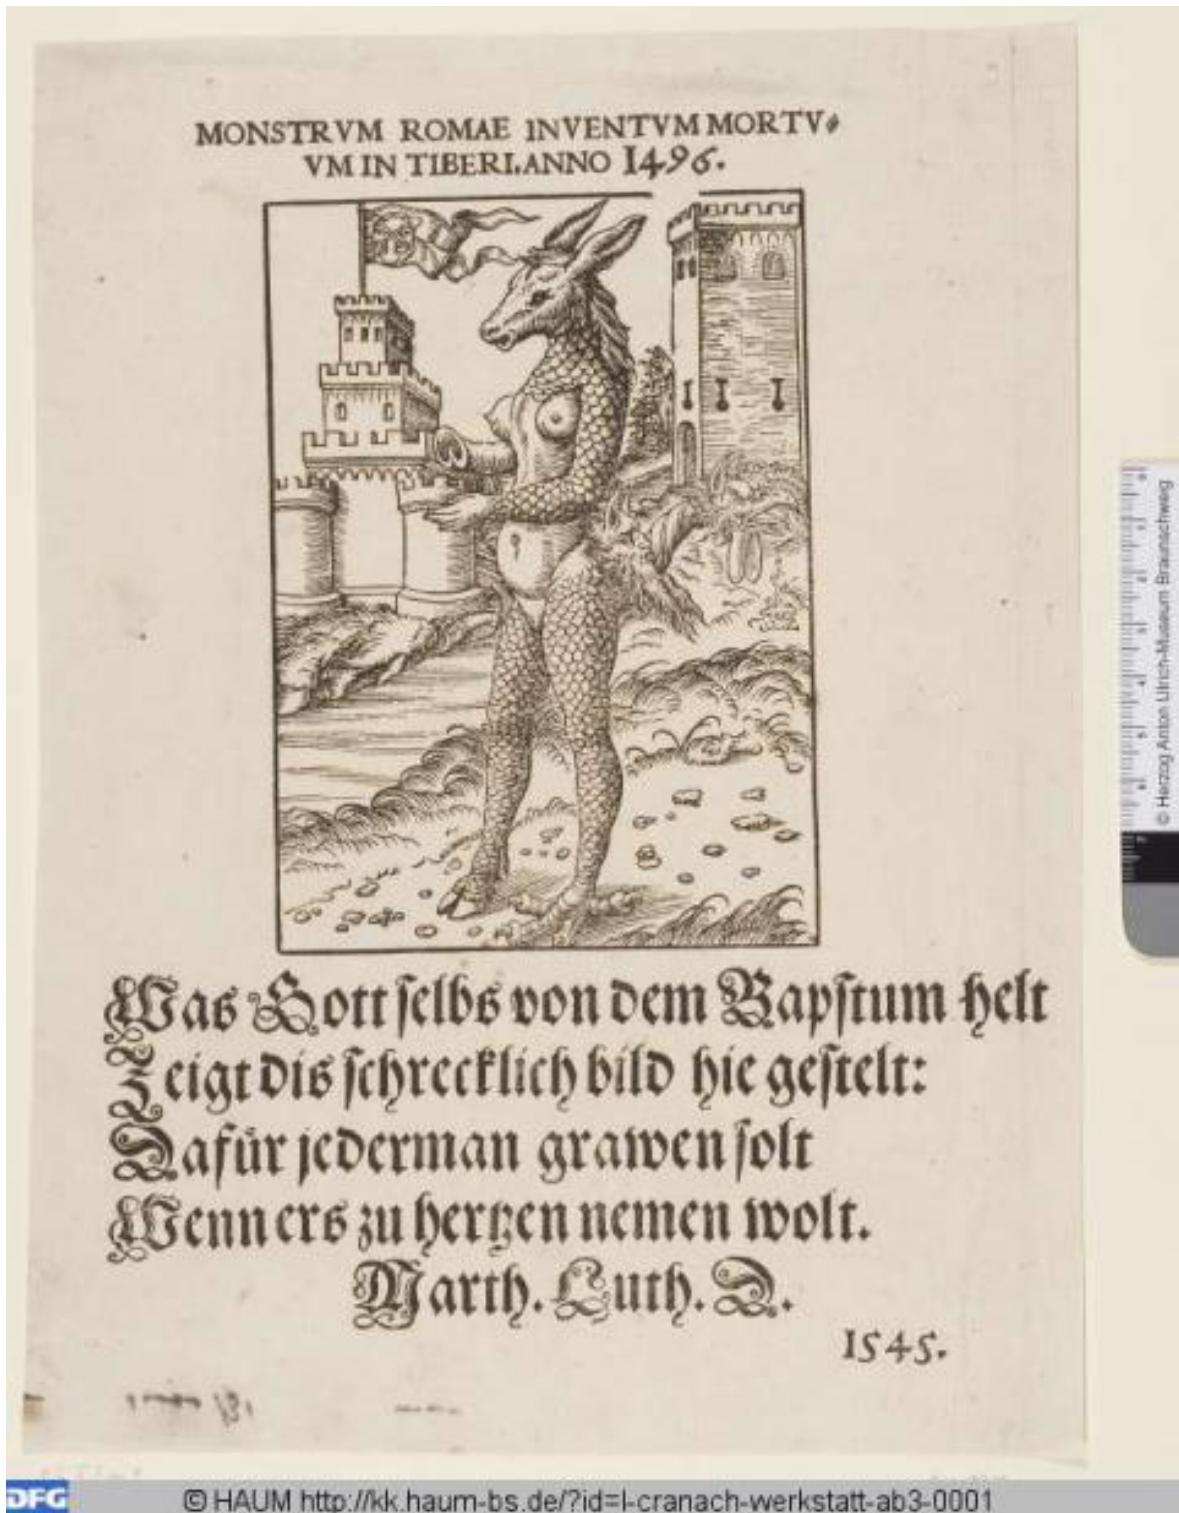 MONSTRVM ROMAE INVENTVM MORTV⸗
VM IN TIBERI. ANNO 1496.
Was Gott selbs von dem Bapstum helt
Zeigt dis schrecklich bild hie gestelt:
Dafür jederman grawen solt
Wenn ers zu hertzen nemen wolt.
Marth. Luth. D.
1545.
© Herzog Anton Ulrich-Museum Braunschweig
DFG
© HAUM http://kk.haum-bs.de/?id=l-cranach-werkstatt-ab3-0001